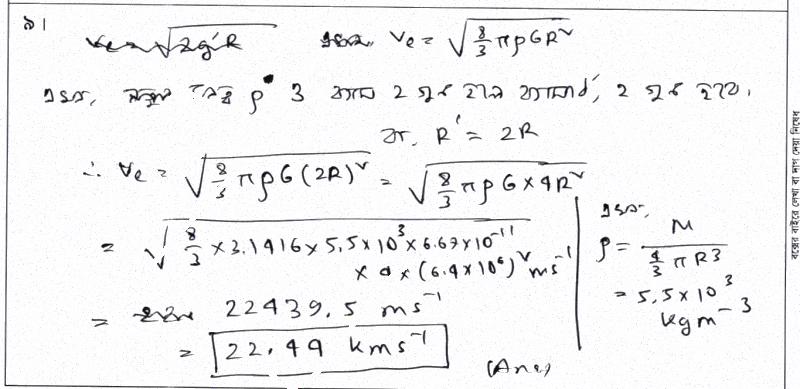 ৯।
v_e = √2g'R এখন, v_e = √(8/3 πρGR²)
এখন, নতুন গ্রহের ρ ও ব্যাস ২ গুন হলে ব্যাসার্ধ, ২ গুন হবে।
বা, R' = 2R
∴ v_e = √(8/3 πρG(2R)²) = √(8/3 πρG×4R²)
= √(8/3 × 3.1416 × 5.5×10³ × 6.67×10⁻¹¹
× 4 × (6.4×10⁶)²) ms⁻¹
= 22439.5 ms⁻¹
= 22.44 kms⁻¹
(Ans)
এখন,
ρ = M / (4/3 πR³)
= 5.5×10³
kgm⁻³
বক্সের বাইরে লেখা বা দাগ দেয়া নিষেধ